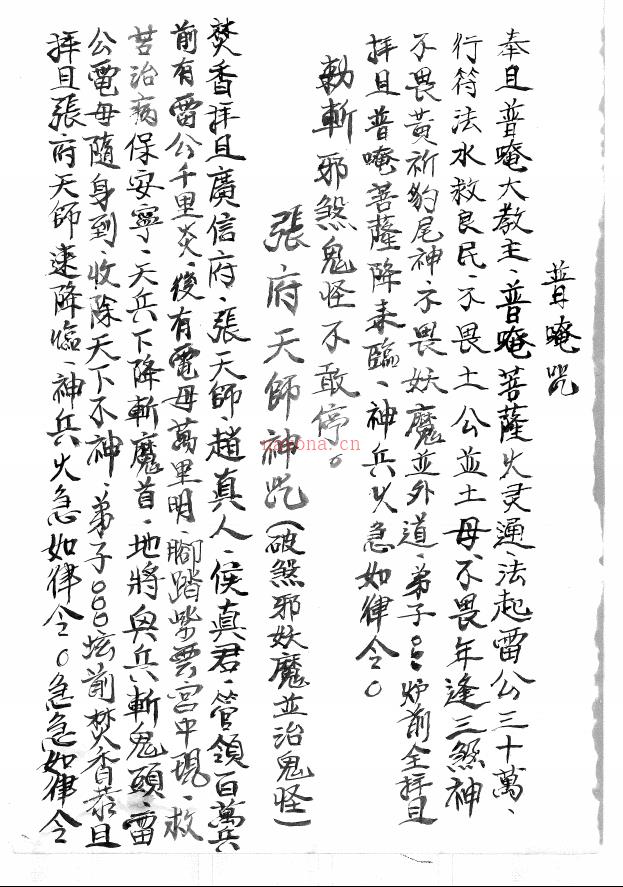 普唵咒
奉且普唵大教主、普唵菩薩火灵通、法起雷公三十萬、
行符法水救良民、不畏土公並土母、不畏年逢三煞神
不畏黃祈豹尾神、不畏妖魔並外道、弟子○○○炉前全拜且
拜且普唵菩薩降來臨、神兵火急如律令○
勅斬邪煞鬼怪不敢停。
張府天師神咒(破煞邪妖魔並治鬼怪)
焚香拜且廣信府、張天師趙真人、侯真君、管領百萬兵
前有雷公千里炎、後有電母萬里明、腳踏紫雲宮中現、救
苦治病保安寧、天兵下降斬魔首、地將與兵斬鬼頭、雷
公電母隨身到、收除天下不神、弟子○○○坛前焚香恭且
拜且張府天師速降臨、神兵火急如律令○急急如律令
nayona.cn